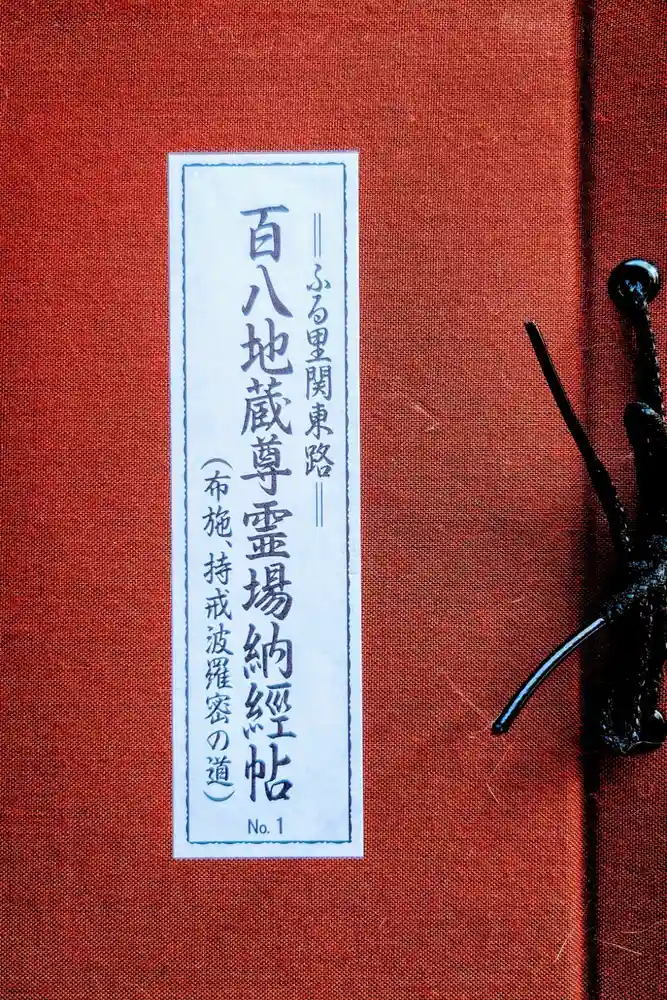 ＝ふる里関東路＝
百八地蔵尊霊場納經帖
（布施、持戒波羅密の道）
No. 1